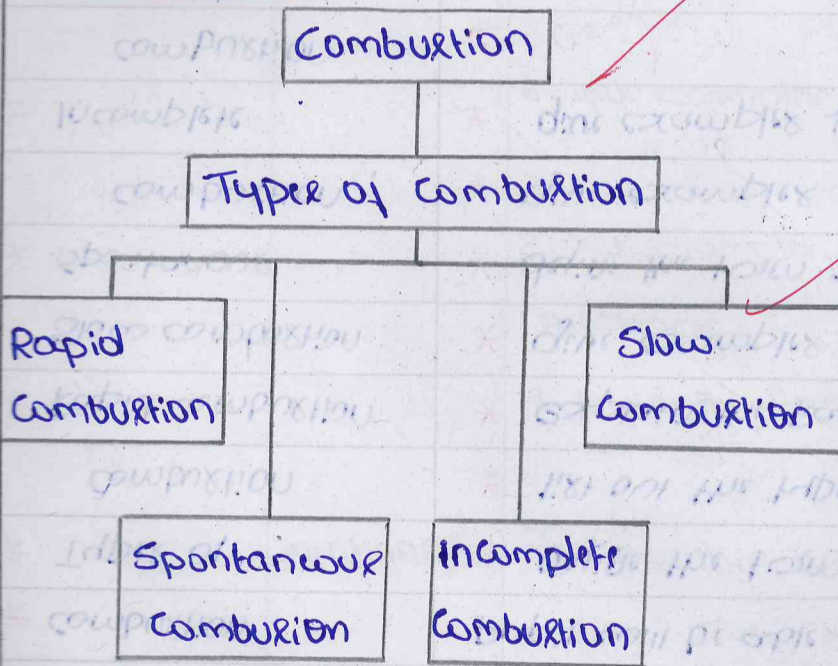 Combustion
Types of combustion
Rapid
combustion
Slow
combustion
Spontaneous
combusion
incomplete
combustion